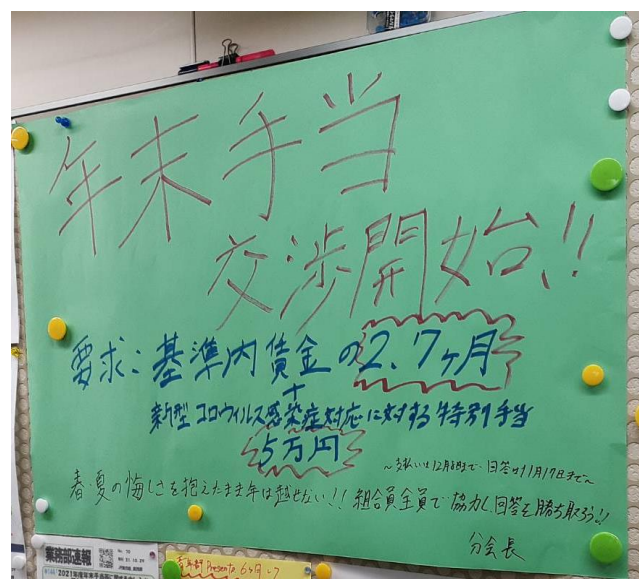 年末手当
交渉開始!!
要求:基準内賃金の2.7ヶ月
+
新型コロウィルス感染症対応に対する特別手当
5万円
~支払いは12月8日まで・回答は11月17日まで~
春・夏の悔しさを抱えたまま年は越せない!!組合員全員で協力し、回答を勝ち取ろう!!
分会長
業務部速報
青年部 Presents